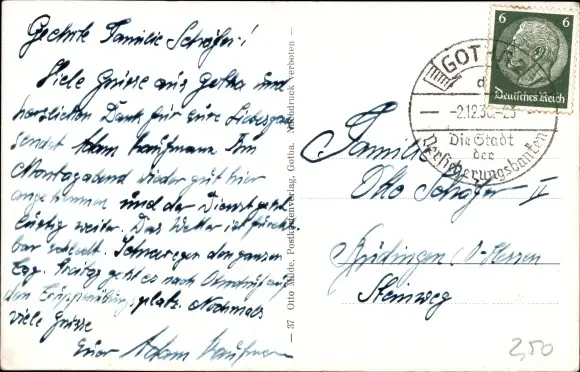 Geehrte Familie Schäfer!
Viele Grüsse aus Gotha und
herzlichen Dank für eure Liebesgaben
sendet Adam Kaufmann. Am
Montagabend wieder gut hier
angekommen und der Dienst geht
lustig weiter. Das Wetter ist furcht-
bar schlecht. Schneeregen den ganzen
Tag. Freitag geht es nach Ohrdruf auf
den Truppenübungsplatz. Nochmals
viele Grüsse
Euer Adam Kaufmann
— 37 Otto Milde, Postkartenverlag, Gotha. Nachdruck verboten —
6 6
Deutsches Reich
GOTHA
-2.12.36.-23
Die Stadt
der
Versicherungsbanken
Familie
Otto Schäfer II
Büdingen / O-Hessen
Steinweg
2,50